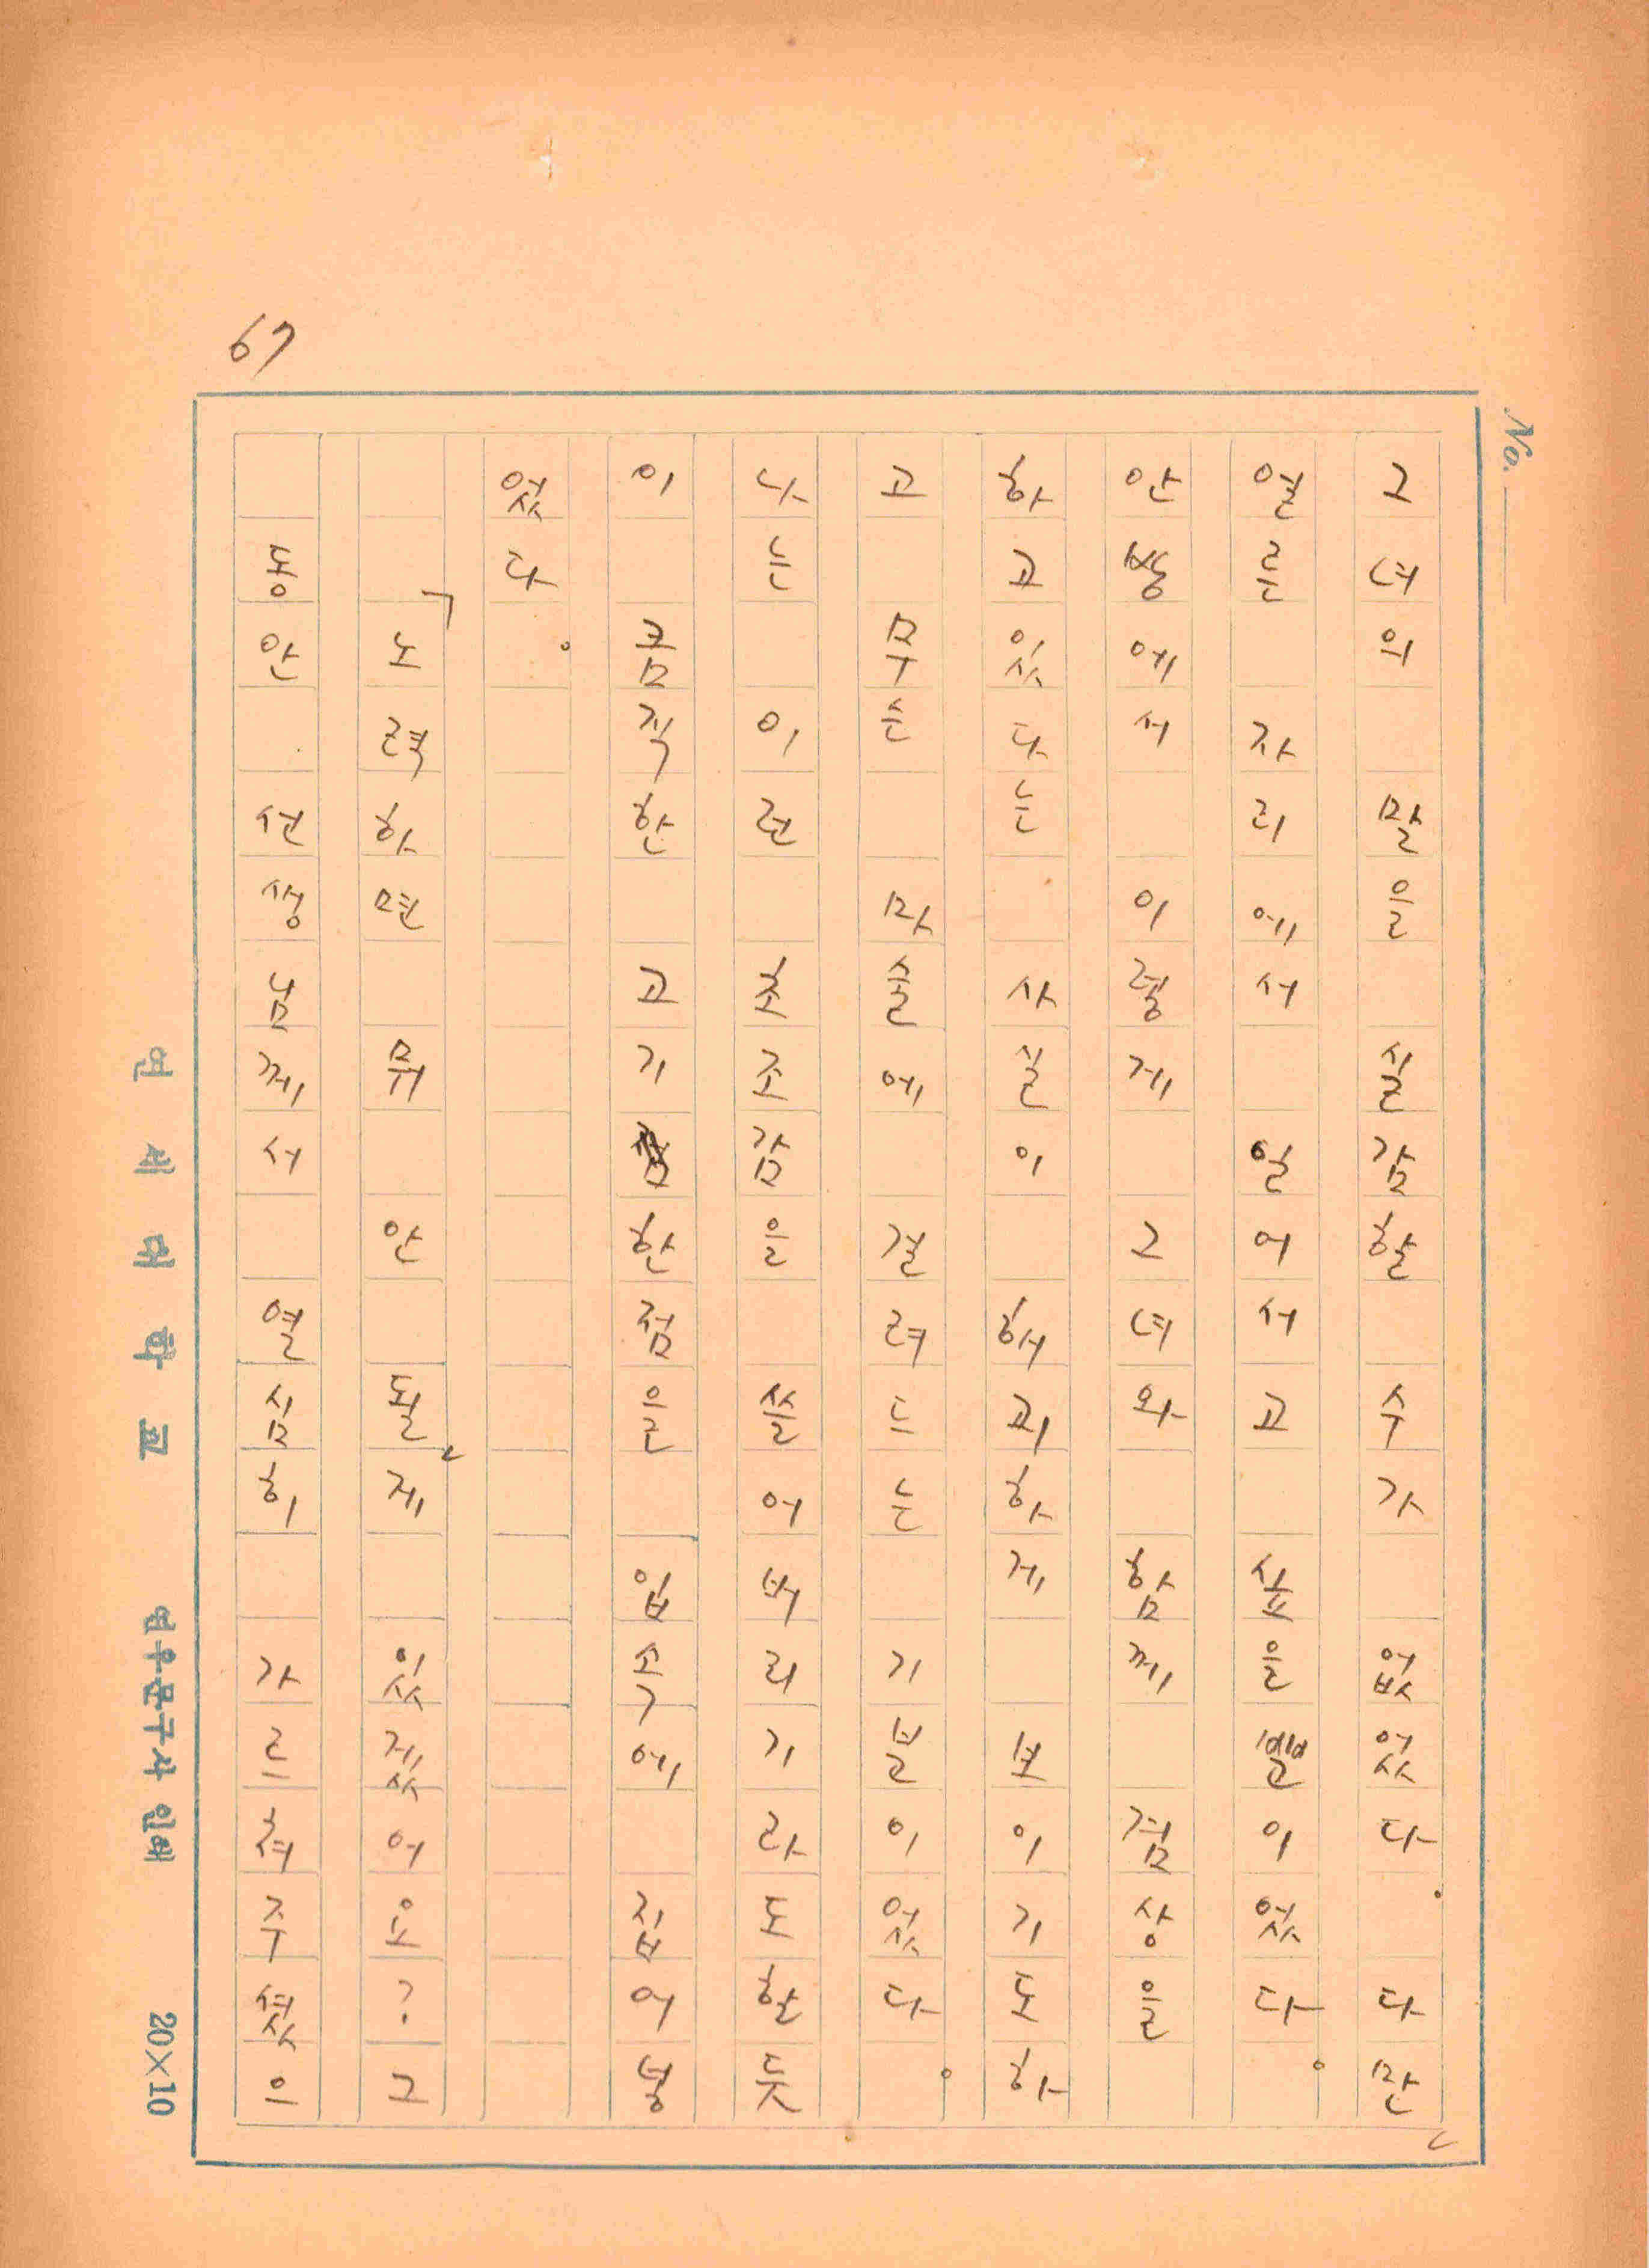 67
No.
그녀의 말을 실감할 수가 없었다. 다만,
얼른 자리에서 일어서고 싶을뿐이었다.
안방에서 이렇게 그녀와 함께 겸상을
하고있다는 사실이 해괴하게 보이기도하
고 무슨 마술에 걸려드는 기분이었다.
나는 이런 초조감을 쓸어버리기라도한듯
이 큼직한 고기한점을 입속에 집어넣
었다.
「노력하면 뭐 안 될게 있겠어요? 그
동안 선생님께서 열심히 가르쳐주셨으
연세대학교 연우문구사 인쇄 20×10